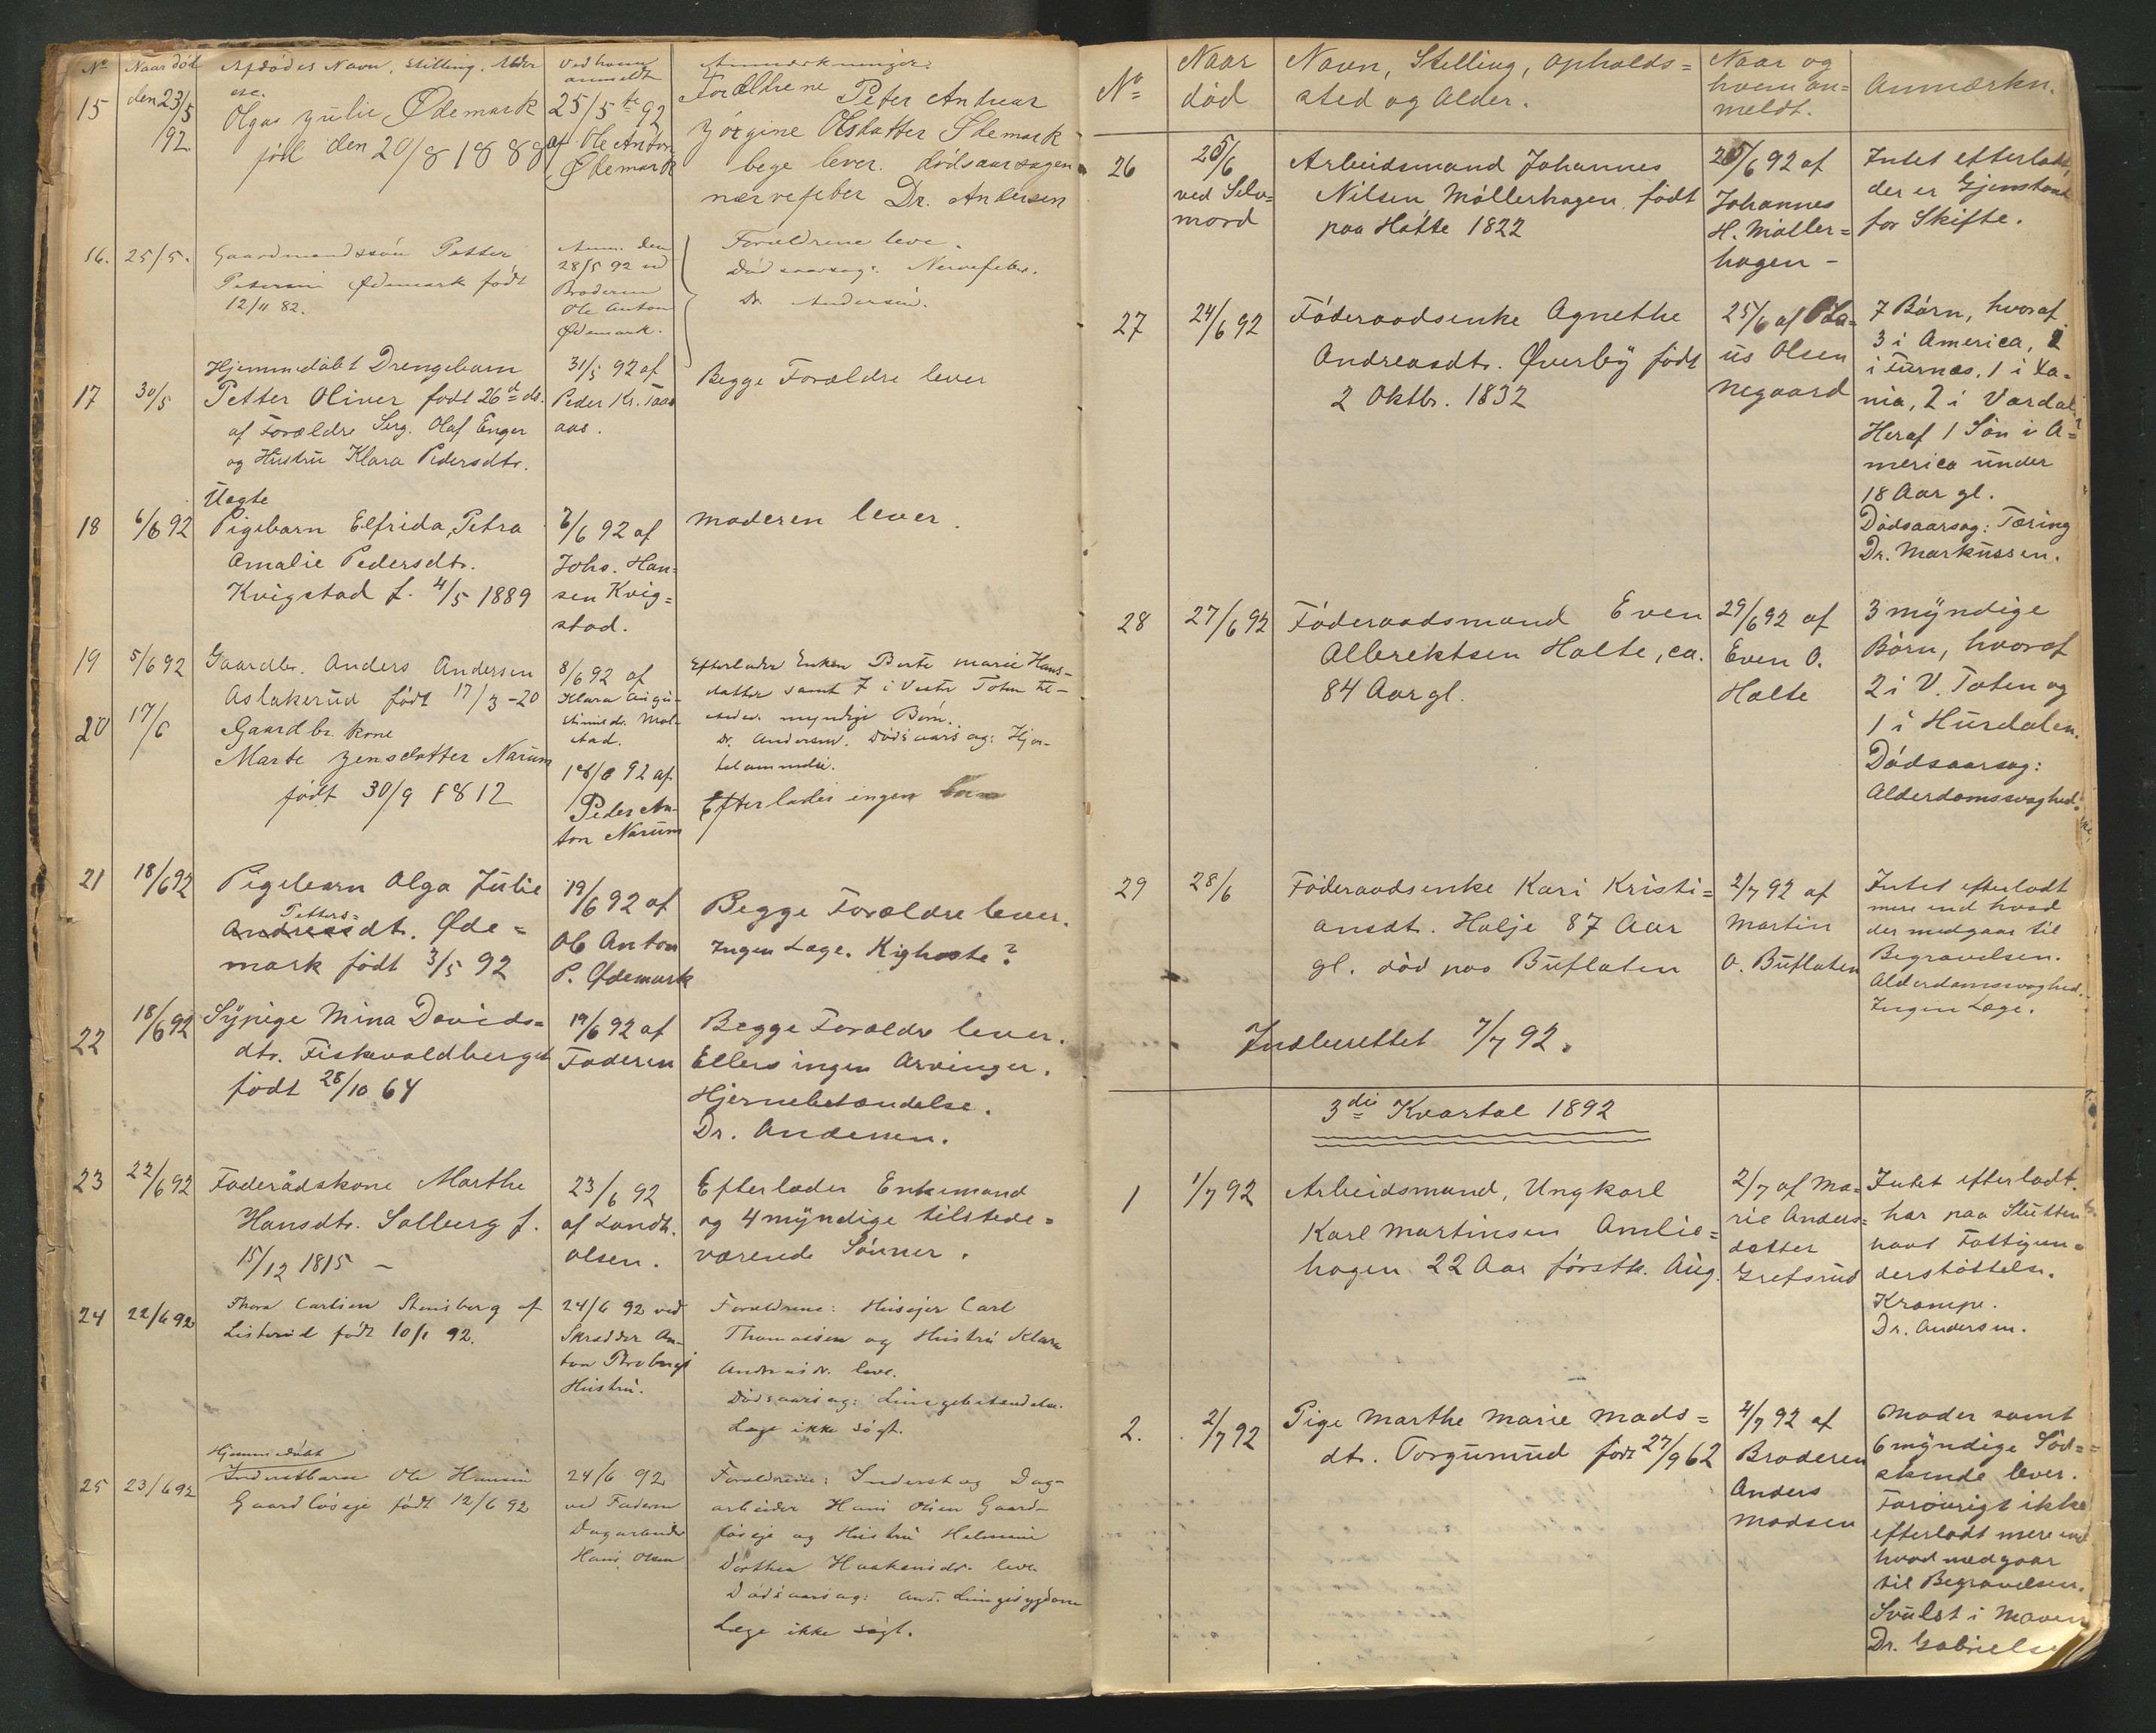 No Naar död Afdödes Navn, Stilling, Alder etc. Ved hvem anmeldt Anmærkninger.
15 den 23/5 92. Olga Julie Ødemark föd den 20/8 1888
25/5 92 af Ole Anton Ødemark
Forældrene Peter Andreas
Jörgine Olsdatter Ødemark
bege lever. dödsaarsagen
nervefeber Dr. Andersen
16. 25/5. Gaardmandssön Petter
Petersen Ødemark födt
12/11 82.
Anm. den
28/5 92 ved
Broderen
Ole Anton
Ødemark.
Forældrene leve.
Dödsaarsag: Nervefeber.
Dr. Andersen.
17 30/5 Hjemmedöbt Drengebarn
Petter Oliver födt 26d ds.
af Forældre Serg. Olaf Enger
og Hustru Klara Pedersdtr.
31/5 92 af
Peder Kr. Taas
aas.
Begge Forældre lever
18 6/6 92 Uægte
Pigebarn Elfrida Petra
Amalie Pedersdtr.
Kvigstad f. 4/5 1889
7/6 92 af
Johs. Han=
sen Kvig=
stad.
Moderen lever.
19 5/6 92 Gaardbr. Anders Andersen
Aslakerud födt 17/3-20
8/6 92 af
Klara
Mal-
stad.
Efterlader Enken Berte Marie Hans-
datter samt 7 i Vestre Toten til-
myndige Börn.
Dr. Andersen. Dödsaarsag: Hjer-
telammelse.
20 17/6 Gaardbr. kone
Marte Jensdatter Narum
födt 30/9 1812
18/6 92 af
Peder An-
ton Narum
Efterlades ingen börn
21 18/6 92 Pigebarn Olga Julie
Petters=
Andreasdt. Øde=
mark födt 3/5 92
19/6 92 af
Ole Anton
P. Ødemark
Begge Forældre lever.
Ingen Læge. Kighoste?
22 18/6 92 Sypige Mina Davids=
dtr. Fiskvoldberget
födt 28/10 64
19/6 92 af
Faderen
Begge Forældre lever.
Ellers ingen Arvinger.
Hjernebetændelse.
Dr. Andersen.
23 22/6 92 Föderådskone Marthe
Hansdtr. Solberg f.
15/12 1815 -
23/6 92
af Landh.
Olsen.
Efterlader Enkemand
og 4 myndige tilstede=
værende Sönner.
24 22/6 92 Thora Carlsen Stensberg af
Listerud födt 10/1 92.
24/6 92 ved
Skrædder An-
ton
Hustru.
Forældrene: Huseier Carl
Thomassen og Hustru Klara
Andreasdr. leve.
Dödsaarsag: Lungebetændelse.
Læge ikke sögt.
25 23/6 92 Hjemmedöbt
Inderstbarn Ole Hansen
Gaardlöseje födt 12/6 92
24/6 92
ved Faderen
Dagarbeider
Hans Olsen
Forældrene: Inderst og Dag-
arbeider Hans Olsen Gaard-
löseje og Hustru Helmine
Dorthea Haakensdr. leve.
Dödsaarsag: Ant. Lungesygdom
Læge ikke sögt.
No Naar död Navn, Stilling, Opholds=
sted og Alder.
Naar og
hvem an=
meldt.
Anmærkn.
26 25/6
ved Selv=
mord
Arbeidsmand Johannes
Nilsen Möllerhagen födt
paa Hatte 1822
26/6 92 af
Johannes
H. Möller=
hagen -
Intet efterladt,
der er Gjenstand
for Skifte.
27 24/6 92 Föderaadsenke Agnethe
Andreasdtr. Øverby födt
2 Oktbr. 1832
25/6 af Ola=
us Olsen
Negaard
7 Börn, hvoraf
3 i America, 1
i Furnæs. 1 i Xa-
nia, 2 i Vardal.
Heraf 1 Sön i A=
merica under
18 Aar gl.
Dödsaarsag: Tæring
Dr. Markussen.
28 27/6 92 Föderaadsmand Even
Albrektsen Holte, ca.
84 Aar gl.
29/6 92 af
Even O.
Holte
3 myndige
Börn, hvoraf
2 i V. Toten og
1 i Hurdalen.
Dödsaarsag:
Alderdomssvaghed.
29 28/6 Föderaadsenke Kari Kristi=
ansdt. Holje 87 Aar
gl. död paa Buflaten
2/7 92 af
Martin
O. Buflaten
Intet efterladt
mere end hvad
der medgaar til
Begravelsen.
Alderdomssvaghed.
Ingen Læge.
Indberettet 7/7 92.
3die Kvartal 1892
1 1/7 92 Arbeidsmand, Ungkarl
Karl Martinsen Amlie=
hagen 22 Aar förstk. Aug.
2/7 af Ma=
rie Anders=
datter
Grefsrud
Intet efterladt.
har paa Slutten
havt Fattigun=
derstöttelse.
Krampe.
Dr. Andersen.
2. 2/7 92 Pige Marthe Marie Mads=
dt. Torgunrud födt 27/9 62
4/7 92 af
Broderen
Anders
Madsen
Moder samt
6 myndige Söd=
skende lever.
Foröurigt ikke
efterladt mere end
hvad medgaar
til Begravelsen.
Svulst i Maven
Dr. Gabrielsen